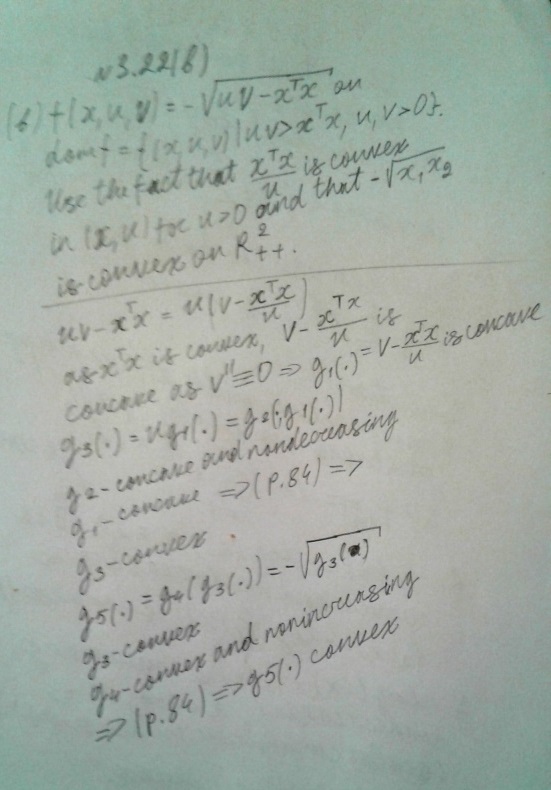 N3.22(b)
(b) f(x,u,v) = -√(uv - xᵀx) on
domf = {(x,u,v)|uv > xᵀx, u,v > 0}.
Use the fact that xᵀx/u is convex
in (x,u) for u > 0 and that -√(x₁x₂)
is convex on R²₊₊.
uv - xᵀx = u(v - xᵀx/u)
as xᵀx is convex, v - xᵀx/u is
concave as v'' = 0 => g₁(·) = v - xᵀx/u is concave
g₃(·) = u g₁(·) = g₂(g₁(·))
g₂ - concave and nondecreasing
g₁ - concave => (p.84) =>
g₃ - convex
g₅(·) = g₄(g₃(·)) = -√(g₃(·))
g₃ - convex
g₄ - convex and nonincreasing
=> (p.84) => g₅(·) convex